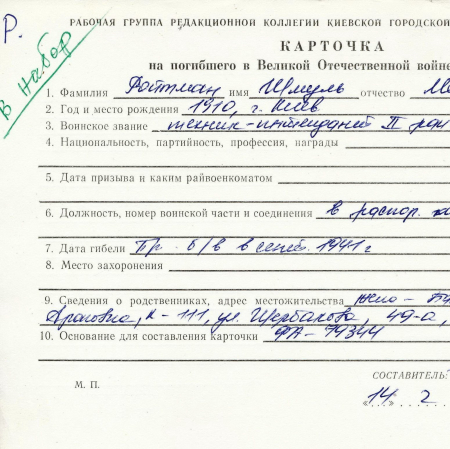 Р.
В набор
РАБОЧАЯ ГРУППА РЕДАКЦИОННОЙ КОЛЛЕГИИ КИЕВСКОЙ ГОРОДСКОЙ
КАРТОЧКА
на погибшего в Великой Отечественной войне
1. Фамилия Ройтман имя Шмуль отчество
2. Год и место рождения 1910, г. Киев
3. Воинское звание техник-интендант II ран
4. Национальность, партийность, профессия, награды
5. Дата призыва и каким райвоенкоматом
6. Должность, номер воинской части и соединения в распор.
7. Дата гибели Пр. б/в в сент. 1941 г
8. Место захоронения
9. Сведения о родственниках, адрес местожительства жена -
К-111, ул. Щербакова, 49-а,
10. Основание для составления карточки ФА-74344
СОСТАВИТЕЛЬ:
М. П.
"14" 2